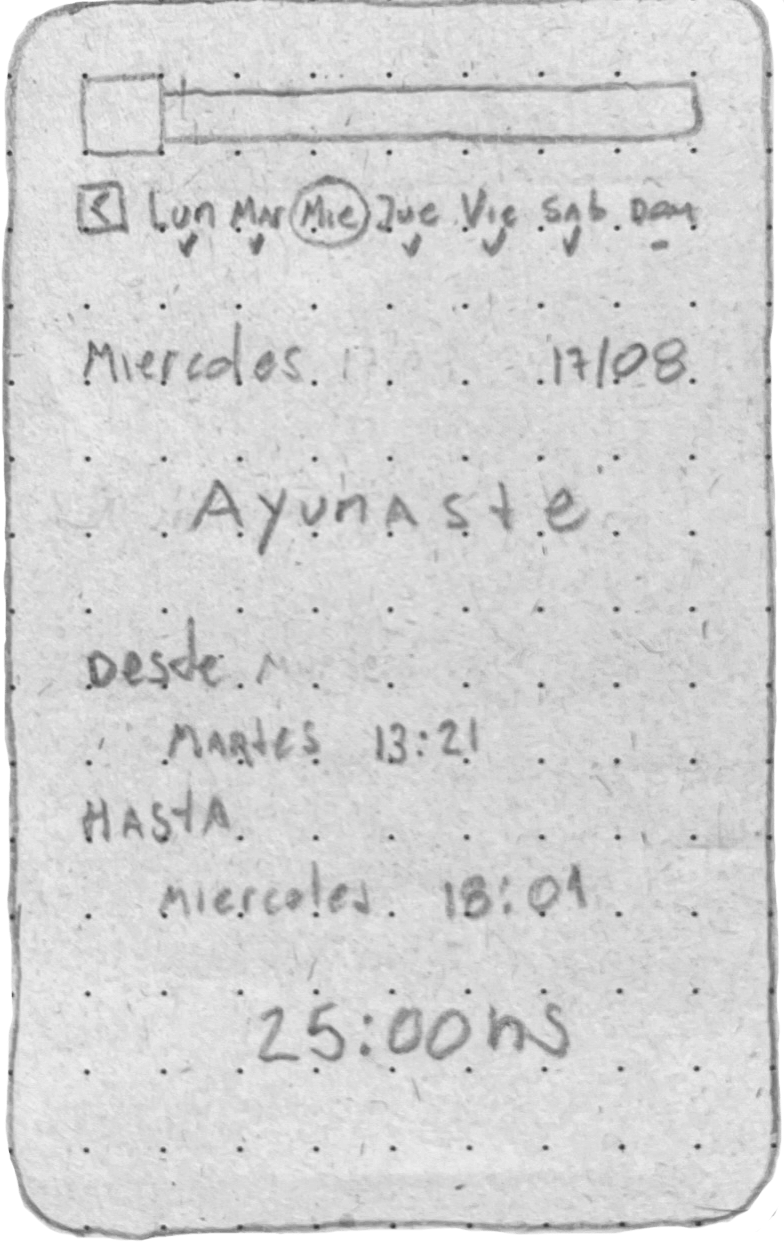 < Lun Mar Mie Jue Vie Sab Dom
Miercoles 17/08
Ayunaste
Desde
Martes 13:21
Hasta
Miercoles 18:01
25:00 hs